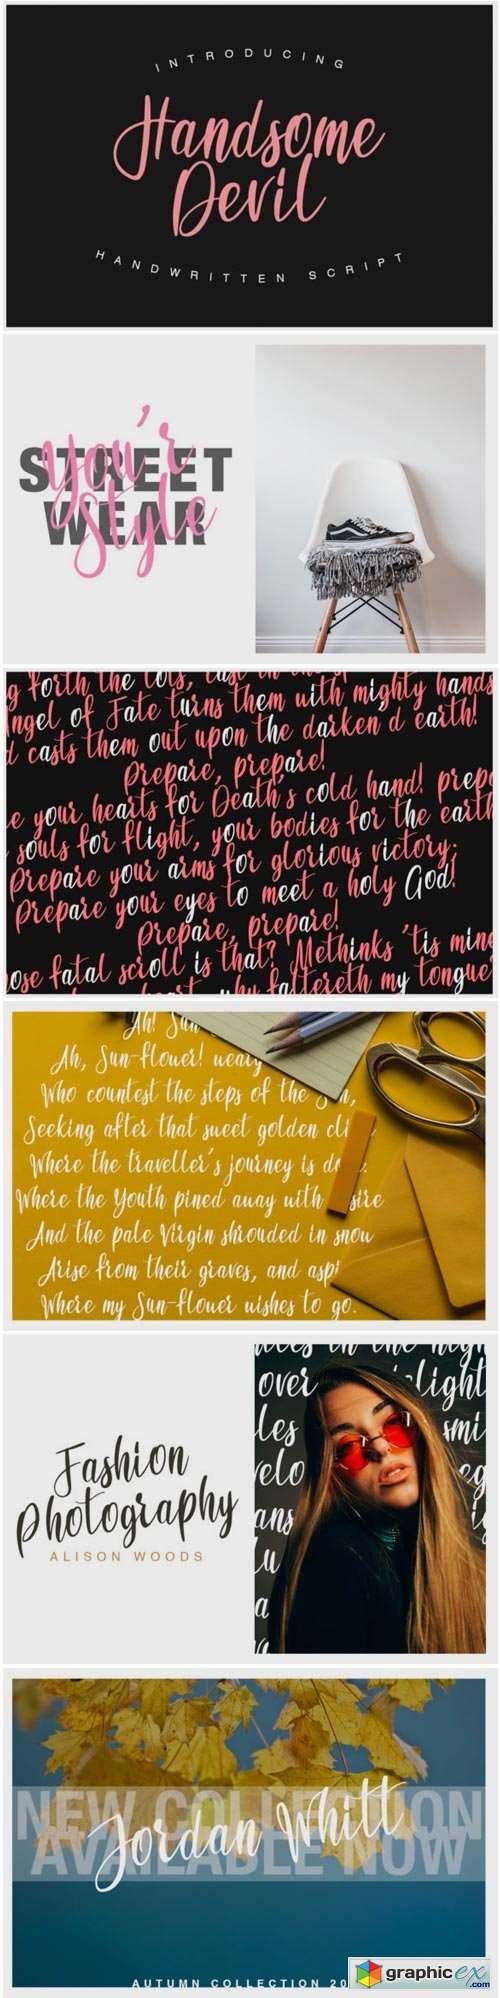 INTRODUCING
Handsome
Devil
HANDWRITTEN SCRIPT
You'r
STREET
Style
WEAR
forth the lots, cast in the
Angel of Fate turns them with mighty hands
casts them out upon the darken'd earth!
Prepare, prepare!
your hearts for Death's cold hand! prepa
souls for flight, your bodies for the earth
Prepare your arms for glorious victory;
Prepare your eyes to meet a holy God!
Prepare, prepare!
fatal scroll is that? Methinks 'tis mine
faltereth my tongue
Ah! Sun
Ah, Sun-flower! weary
Who countest the steps of the Sun,
Seeking after that sweet golden cli
Where the traveller's journey is do
Where the Youth pined away with sire
And the pale Virgin shrouded in snow
Arise from their graves, and aspi
Where my Sun-flower wishes to go.
in the nigh
over light
les smi
velo eg
ans
a
Fashion
Photography
ALISON WOODS
NEW COLLECTION
Jordan Whitt
AVAILABLE NOW
AUTUMN COLLECTION 20
graphicex.com